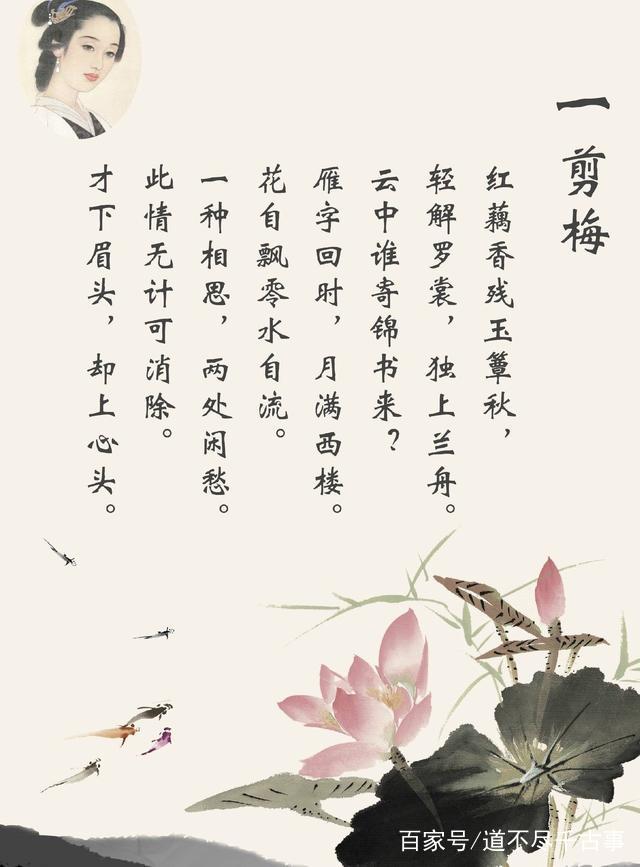 一剪梅
红藕香残玉簟秋，
轻解罗裳，独上兰舟。
云中谁寄锦书来？
雁字回时，月满西楼。
花自飘零水自流。
一种相思，两处闲愁。
此情无计可消除。
才下眉头，却上心头。
百家号/道不尽千古事